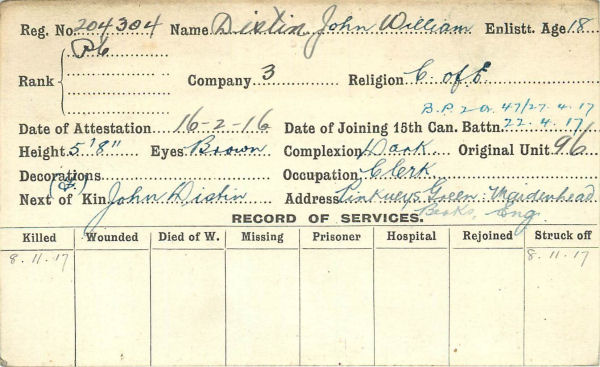 Reg. No. 204304 Name Distin, John William Enlistt. Age 18
Pte
Rank Company 3 Religion C of E
B.P. 2 Or. 47/27.4.17
Date of Attestation 16-2-16 Date of Joining 15th Can. Battn. 22.4.17
Height 5'8" Eyes Brown Complexion Dark Original Unit 96
Decorations Occupation Clerk
Next of Kin (F) John Distin Address Pinkneys Green. Maidenhead
Berks, Eng.
RECORD OF SERVICES.
Killed Wounded Died of W. Missing Prisoner Hospital Rejoined Struck off
8.11.17 8.11.17